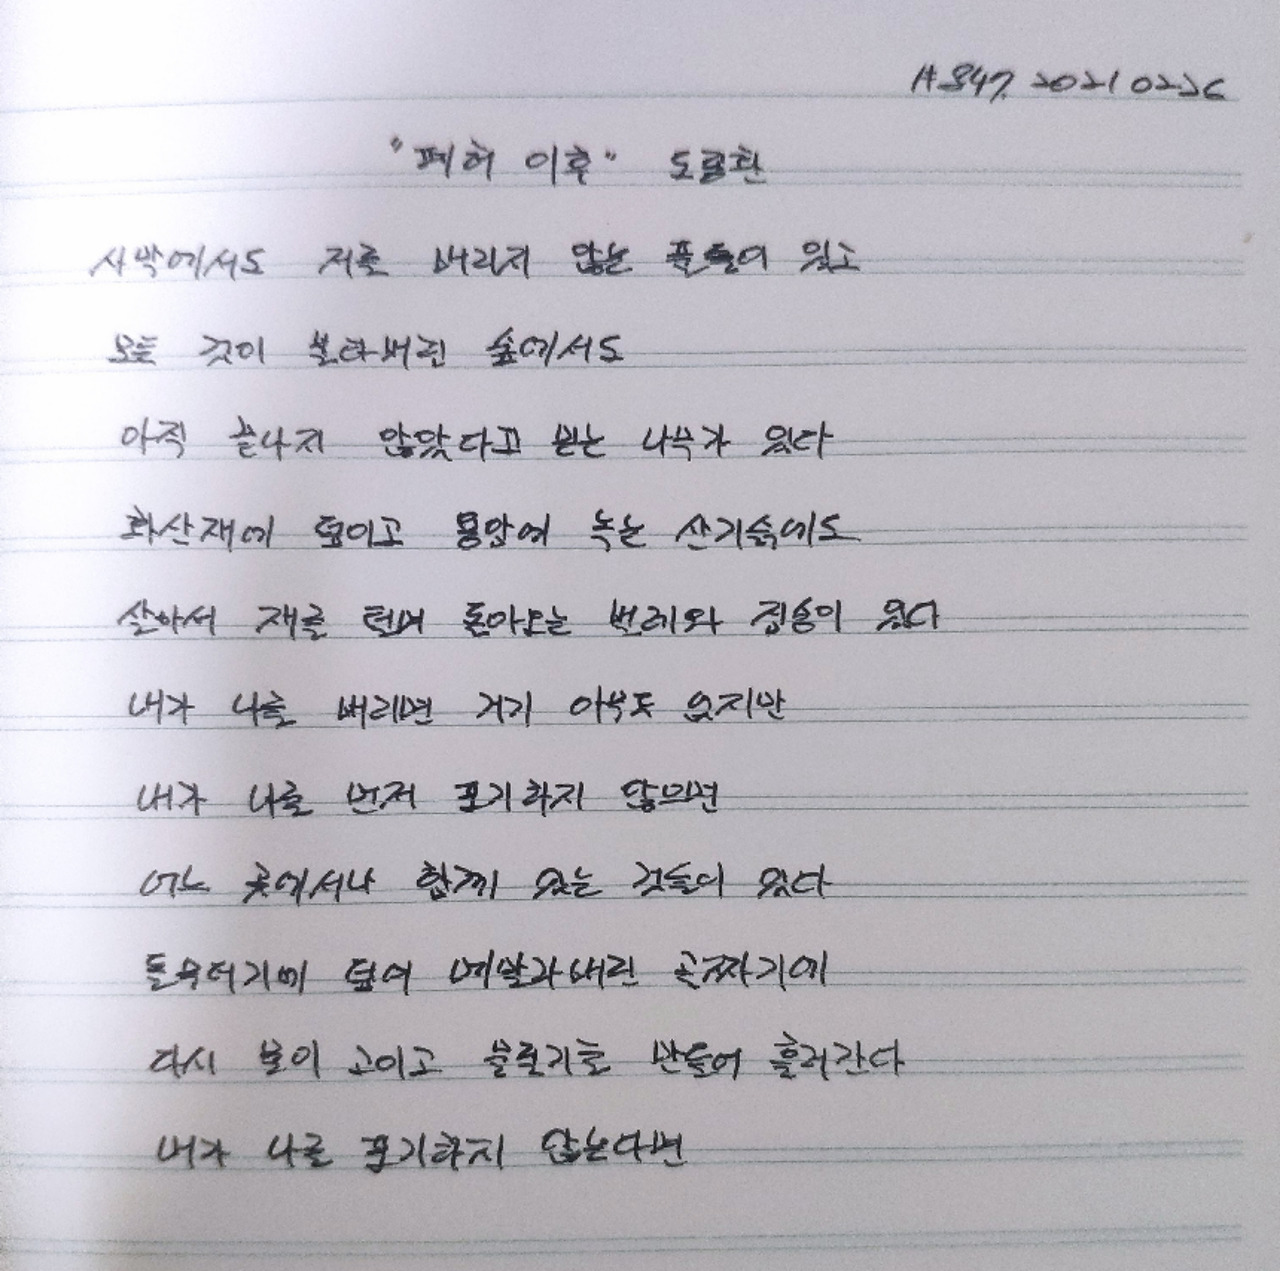 #847. 20210226
"폐허 이후" 도종환
사막에서도 저를 버리지 않는 풀들이 있고
모든 것이 불타버린 숲에서도
아직 끝나지 않았다고 믿는 나무가 있다
화산재에 덮이고 용암에 녹는 산기슭에도
살아서 재를 털며 돋아오는 벌레와 짐승이 있다
내가 나를 버리면 거기 아무도 없지만
내가 나를 먼저 포기하지 않으면
어느 곳에서나 함께 있는 것들이 있다
돌무더기에 덮여 메말라버린 골짜기에
다시 물이 고이고 물줄기를 만들어 흘러간다
내가 나를 포기하지 않는다면